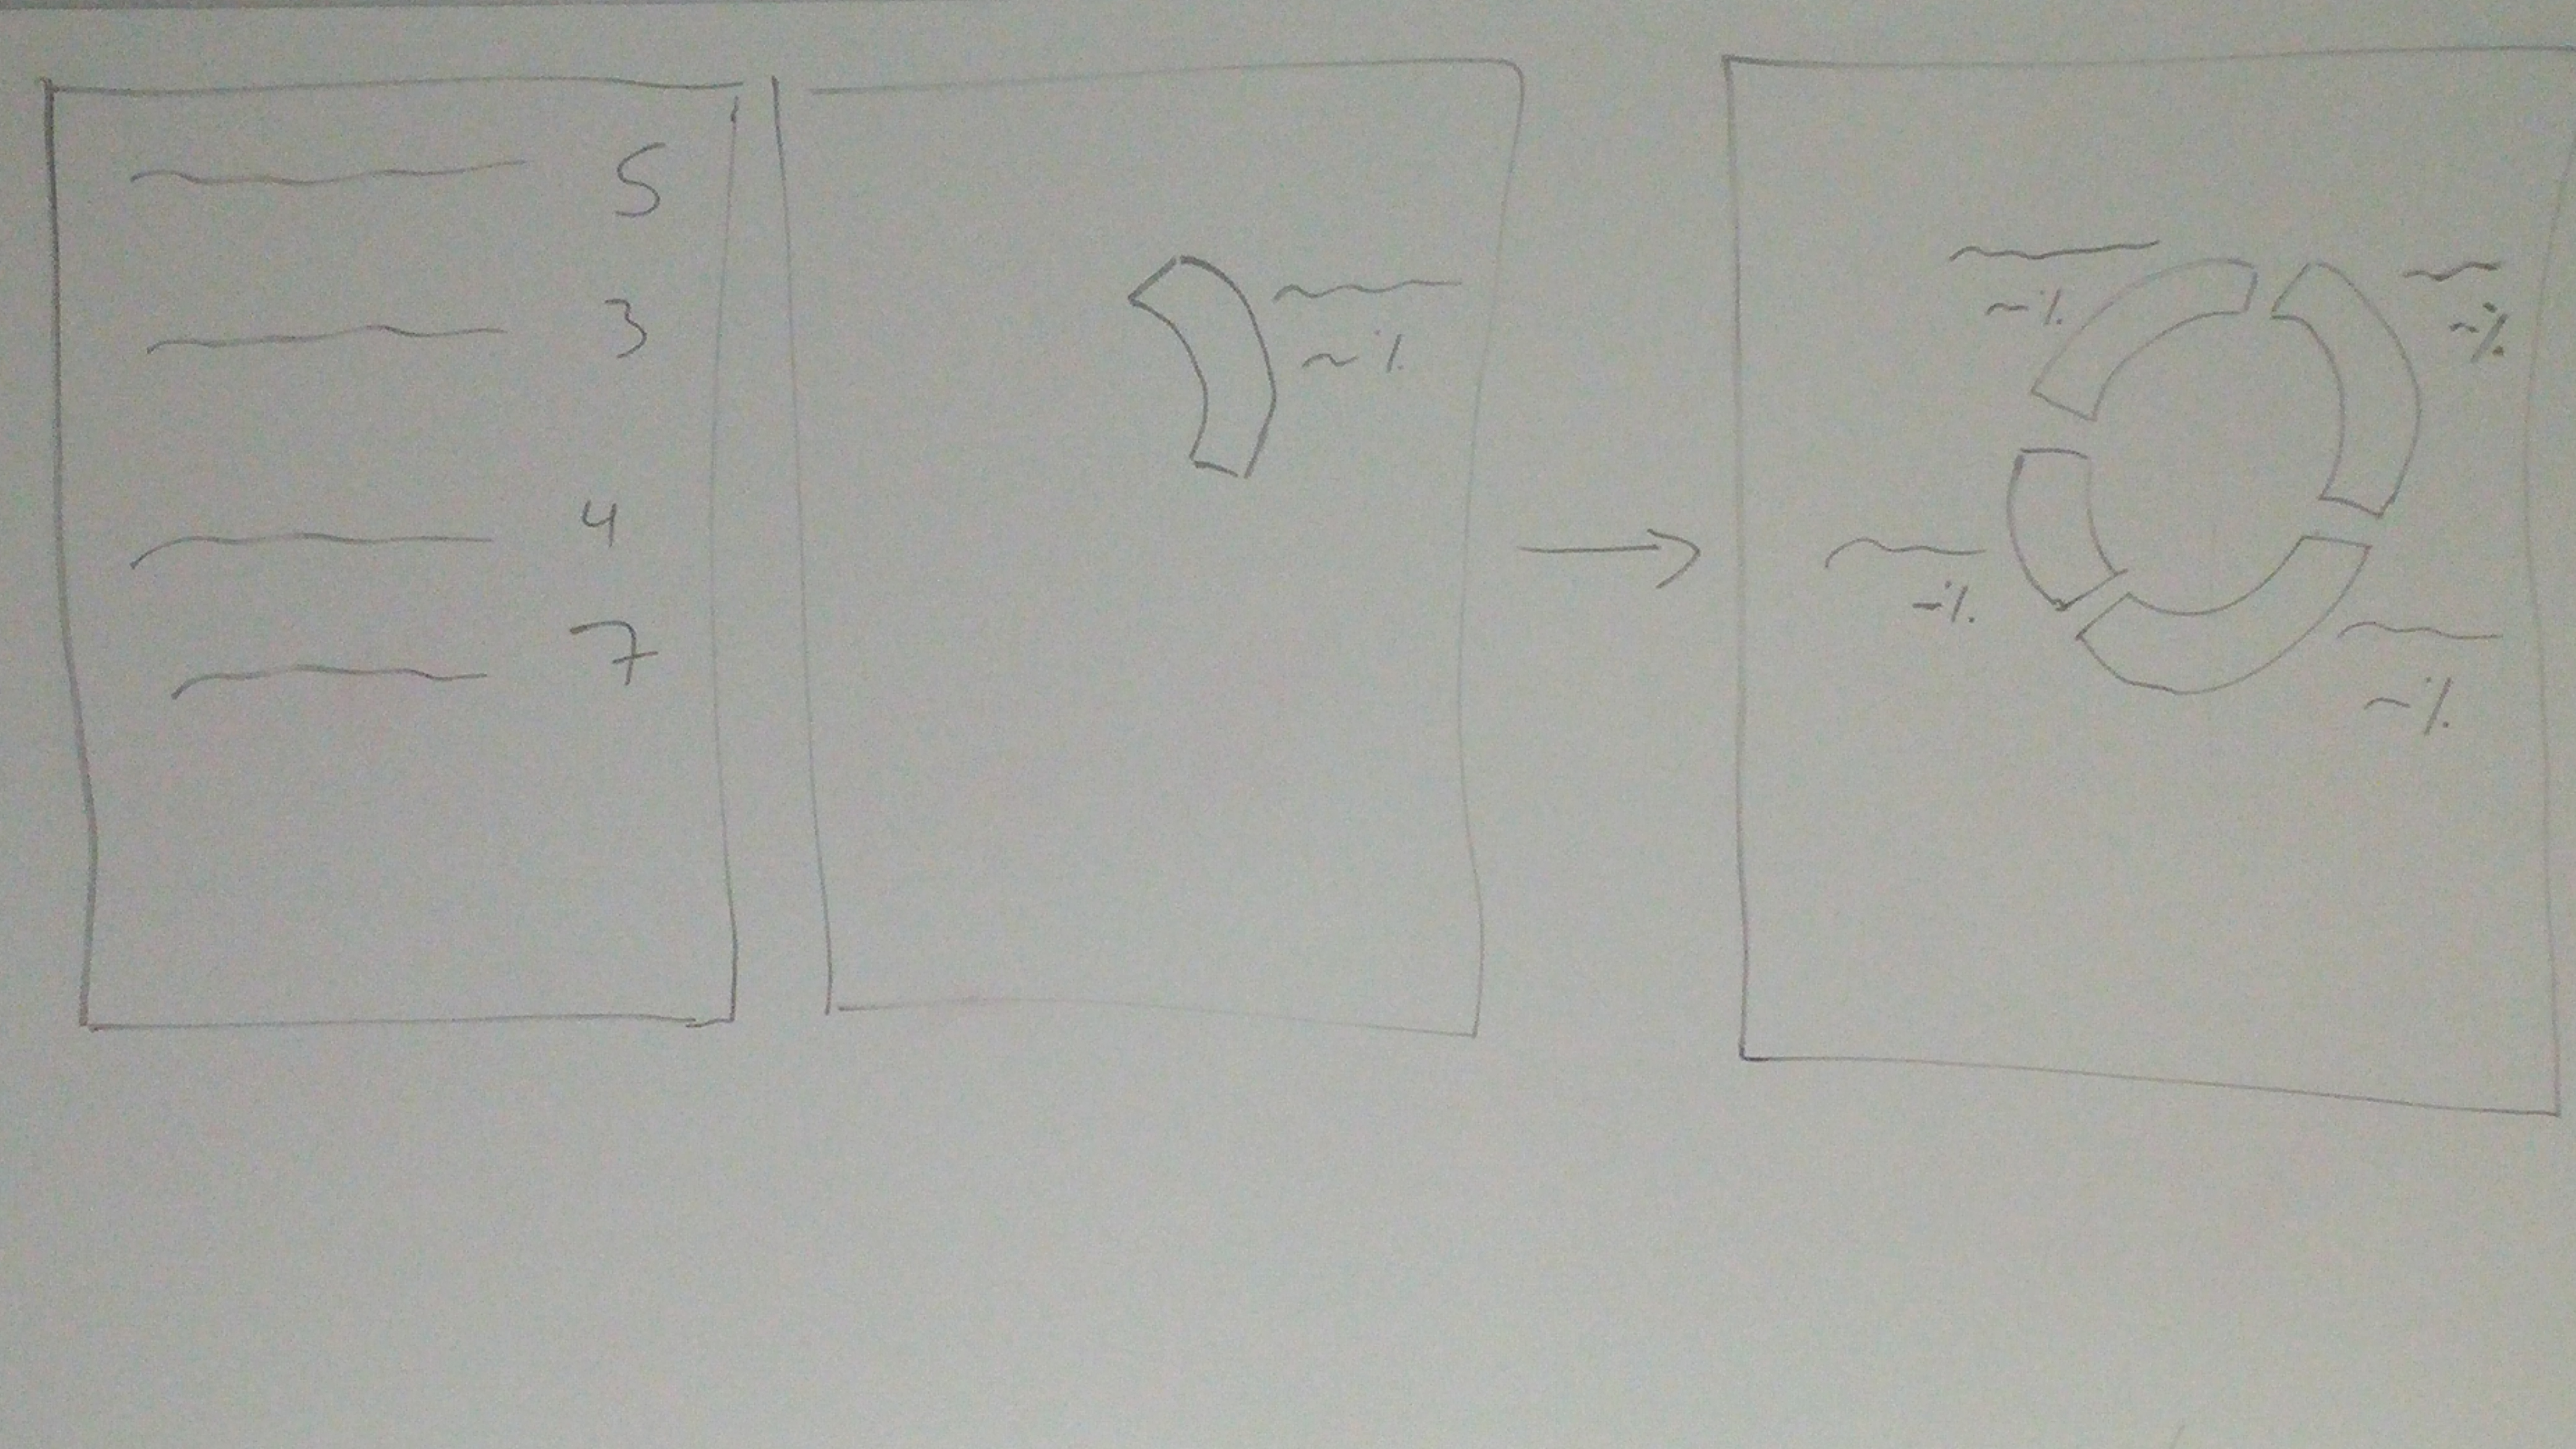 5
3
4
7
~%
~%
~%
~%
~%